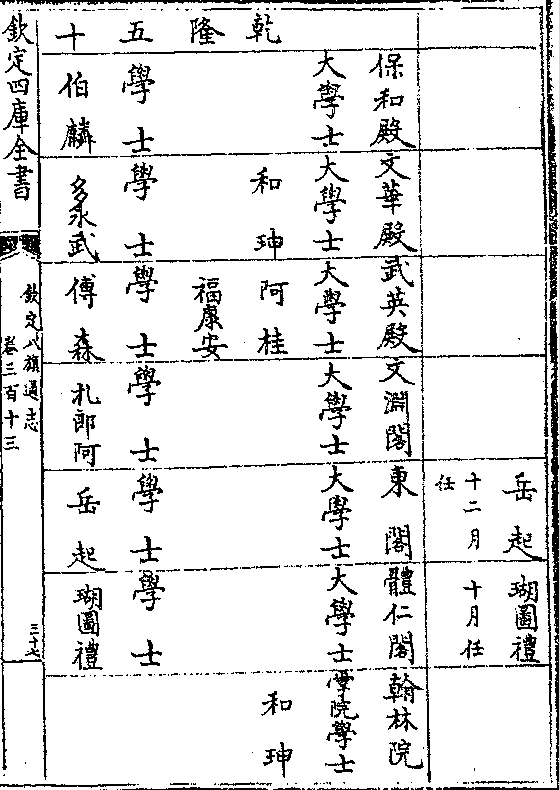 岳起 瑚圖禮
十二月 十月任
任
保和殿 文華殿 武英殿 文淵閣 東閣 體仁閣 翰林院
大學士 大學士 大學士 大學士 大學士 大學士 掌院學士
乾隆五十
和珅 阿桂 和珅
福康安
學士 學士 學士 學士 學士 學士
伯麟 多永武 傅森 札郎阿 岳起 瑚圖禮
欽定四庫全書
欽定八旗通志
卷三百十三
三十七